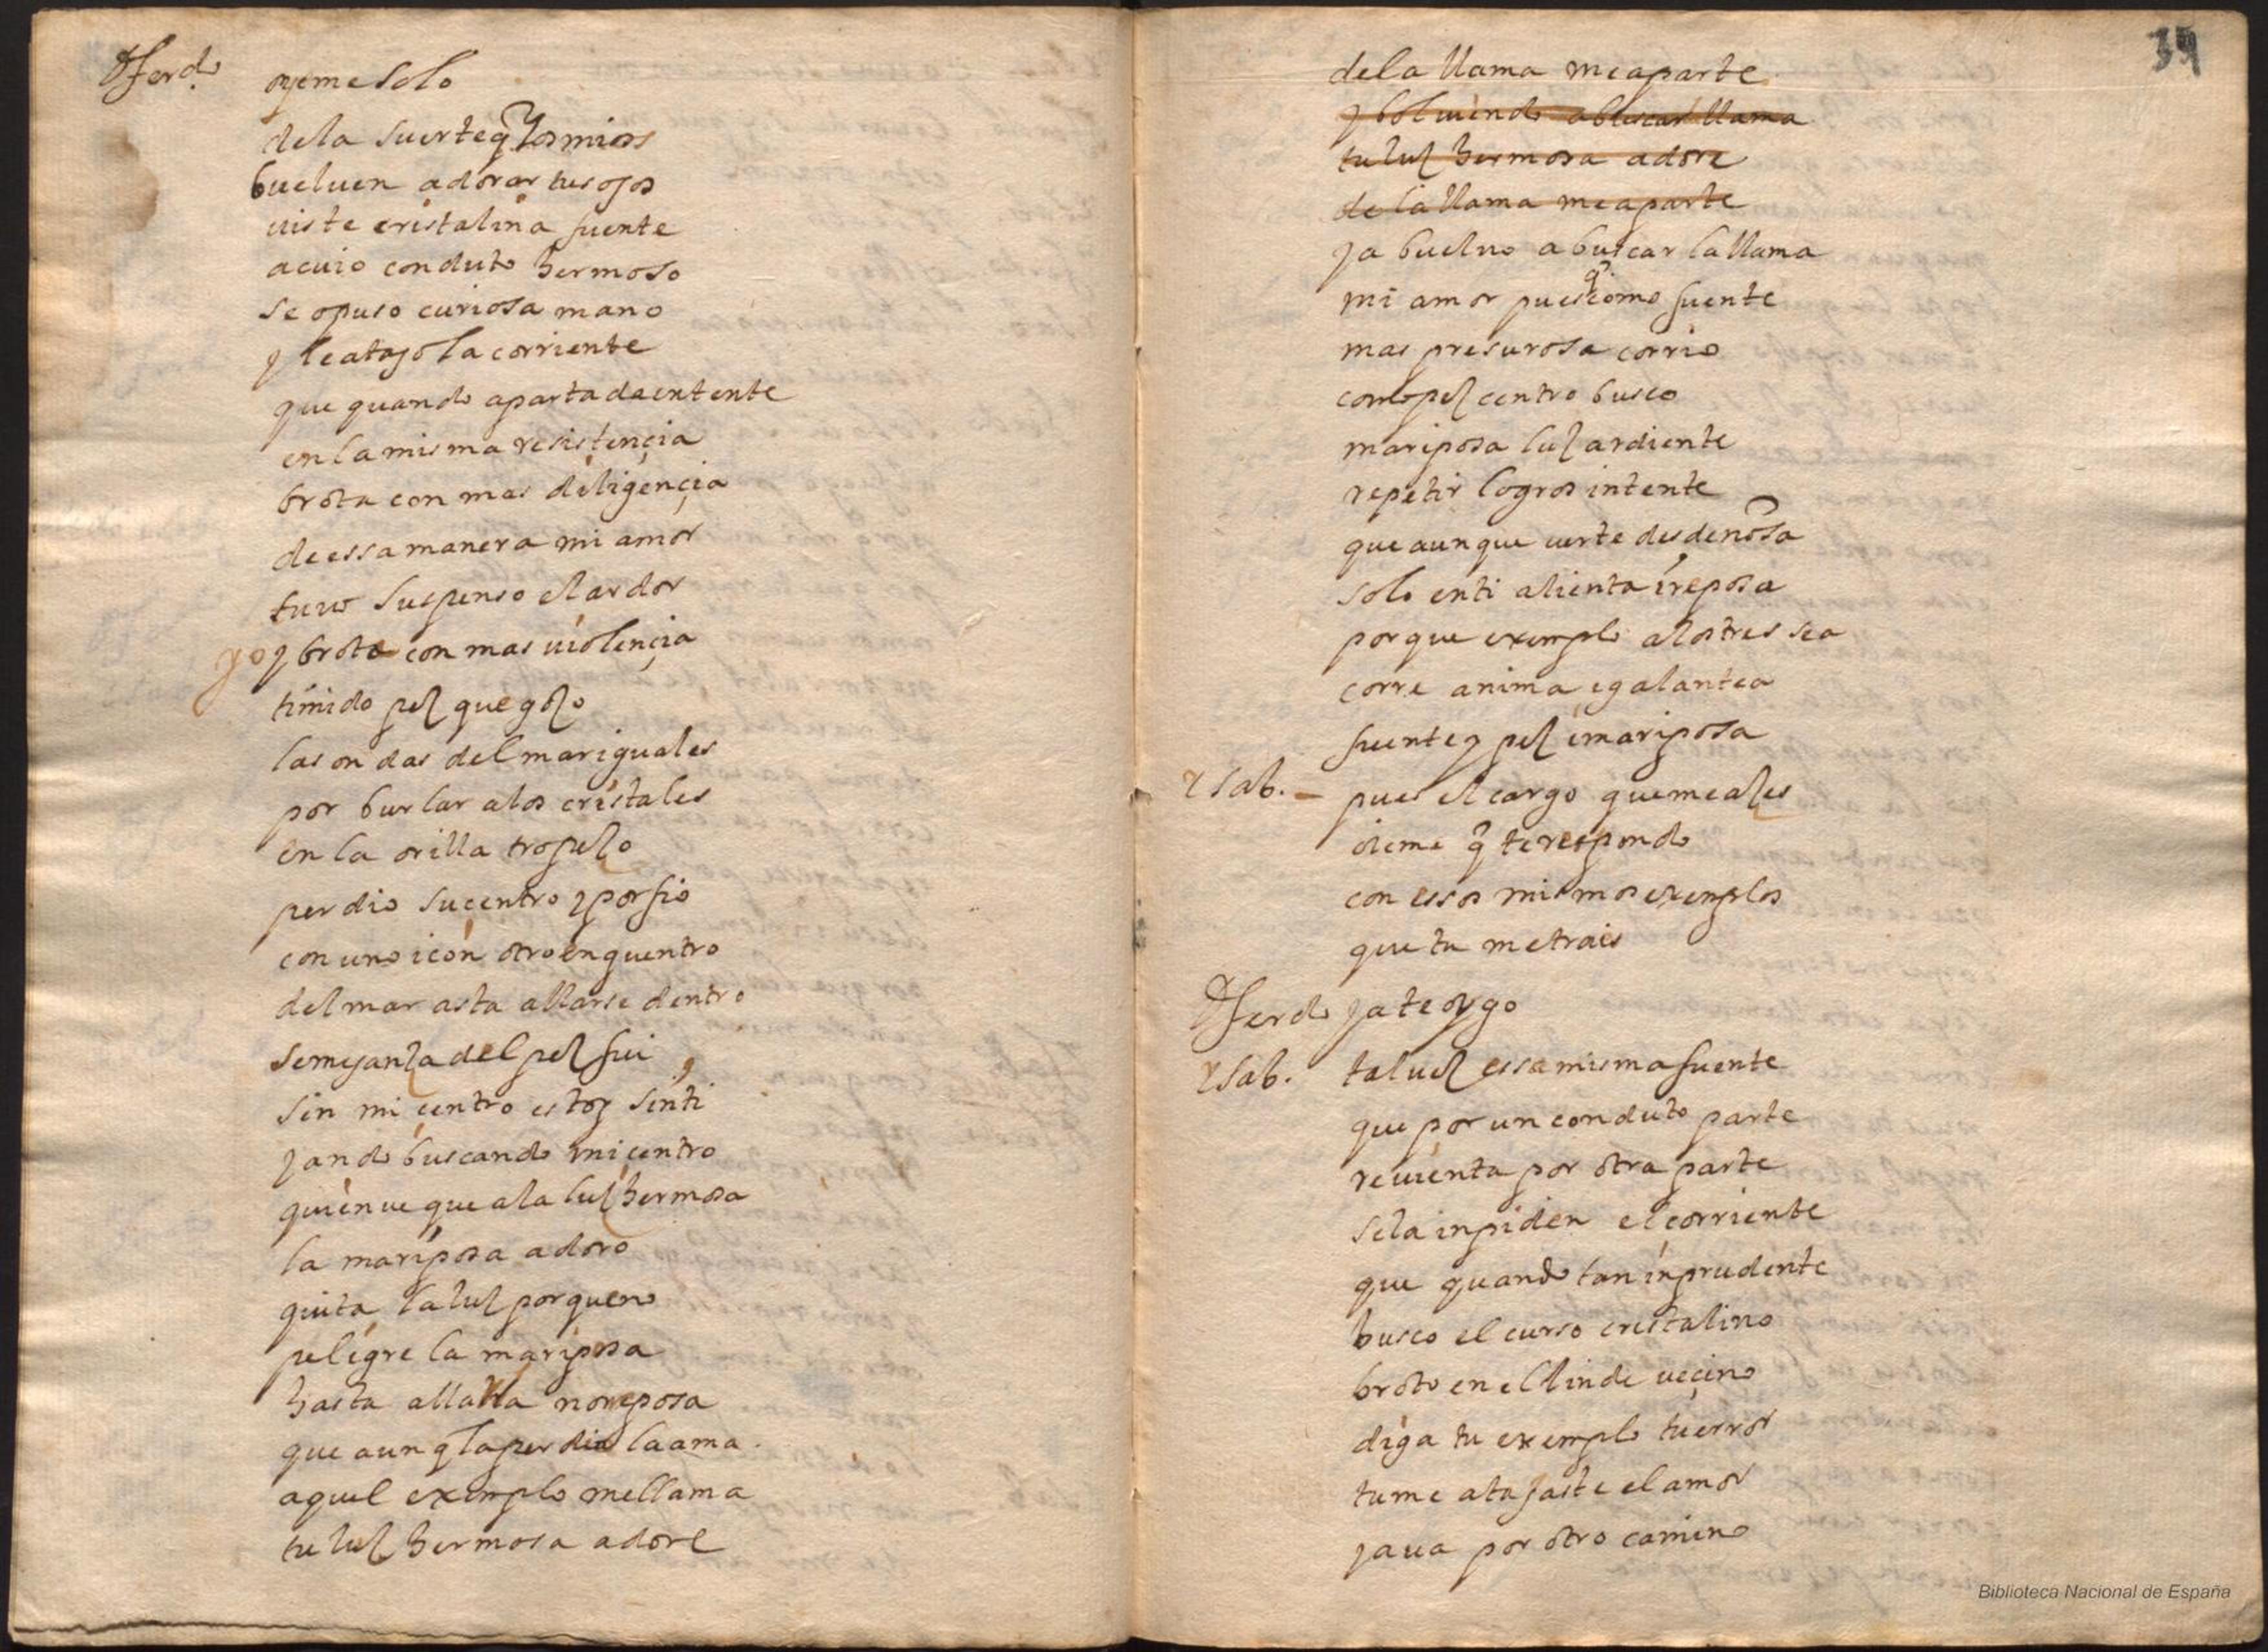 Dferdo. oyeme solo
de la suerte q los mios
bueluen adorar tus ojos
uiste cristalina fuente
a cuio conduto hermoso
se opuso curiosa mano
y le atajo la corriente
que quando apartada entente
en la misma resistençia
brota con mas diligençia
de essa manera mi amor
tuuo suspenso el ardor
y broto con mas uiolençia
timido pez que gozo
las ondas del mar iguales
por burlar a los cristales
en la orilla tropezo
perdio su centro y porfio
con uno i con otro enquentro
del mar asta allarse dentro
semejanza del pez fui
sin mi çentro estoy sin ti
y ando buscando mi çentro
quien ue que a la luz hermosa
la mariposa adoro
quita la luz por que no
peligre la mariposa
hasta allalla no reposa
que aun q la perdio la ama
aquel exemplo me llama
tu luz hermosa adore
de la llama me aparte
y boluiendo a buscar llama
tu luz hermosa adore
de la llama me aparte
ya buelue a buscar la llama
mi amor pues q como fuente
mas presurosa corrio
como pez centro busco
mariposa luz ardiente
repetir logros intente
que aunque uerte desdeñosa
solo en ti alienta i reposa
porque exemplo a los tres sea
corre anima e galantea
fuente y pez i mariposa
Ysab. – pues el cargo que me azes
oieme q te respondo
con essos mismos exemplos
que tu me trais
Dferdo ya te oygo
Ysab. tal uez essa misma fuente
que por un conduto parte
reuienta por otra parte
se la inpiden el corriente
que quando tan inprudente
busco el curso cristalino
broto en el linde ueçino
diga tu exemplo tu error
tu me atajaste el amor
ya ua por otro camino
39
Biblioteca Nacional de España